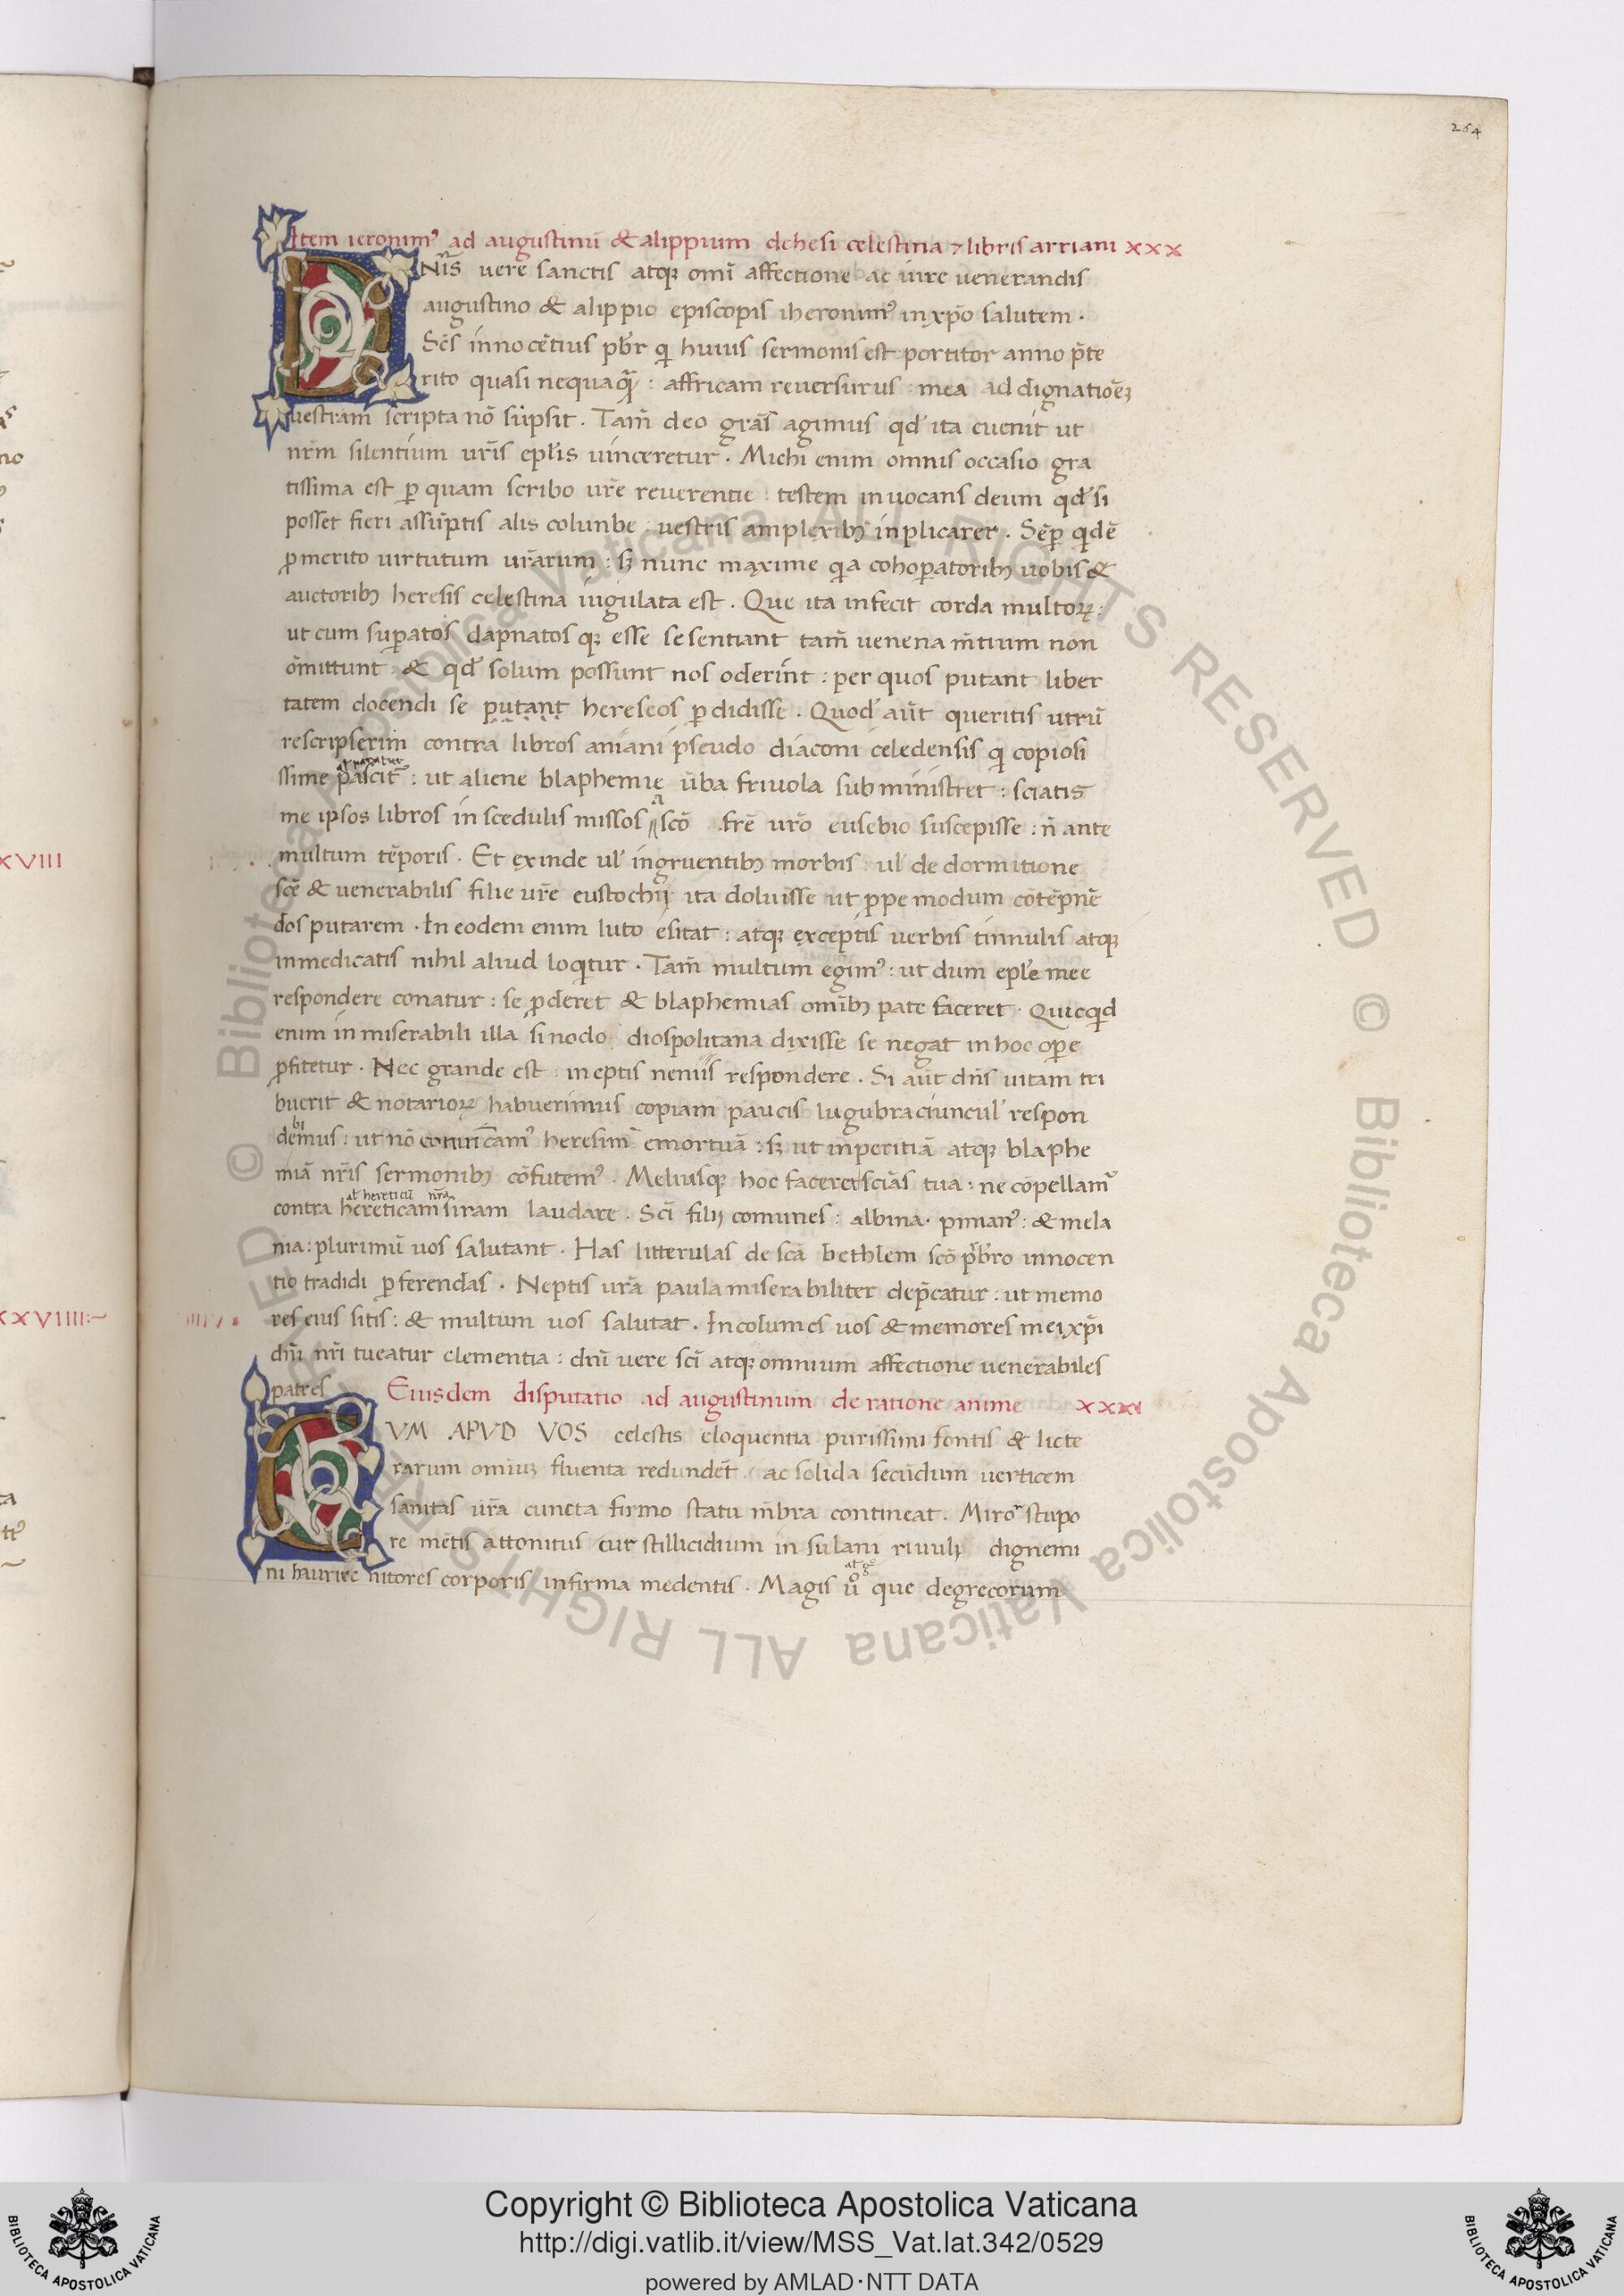 264
Item ieronim⁹ ad augustinū & alippium de hesi celestina ⁊ libris arriani xxx
DNI̅S vere sanctis atq; omi̅ affectione ac iure venerandis
augustino & alippio episcopis iheronim⁹ in xp̅o salutem.
Sc̅s innoce̅tius pb̅r qi huius sermonis est portitor anno p̅te
rito quasi nequaq̅ : affricam reversurus : mea ad dignatio̅eʒ
vestram scripta no̅ su̅psit . Tam̅ deo gra̅s agimus qd' ita evenit ut
nr̅m silentium vr̅is epl̅is vinceretur . Michi enim omnis occasio gra
tissima est ꝑ quam scribo vr̅e reverentie : testem invocans deum qd' si
posset fieri assu̅ptis alis colunbe : vestris amplexibꝫ inplicarer . Se̅ꝑ qide̅
ꝓ merito virtutum vr̅arum : sꝫ nunc maxime qia cohoꝑatoribꝫ vobis &
auctoribꝫ heresis celestina iugulata est . Que ita infecit corda multoꝝ :
ut cum suꝑatos dapnatos qꝫ esse se sentiant tam̅ venena m̅tium non
o̅mittunt : & qd' solum possunt nos oderint : per quos putant liber
tatem docendi se putant hereseos ꝑdidisse . Quod' au̅t queritis utru̅
rescripserim contra libros aniani pseudo diaconi celedensis qi copiosi
ssime pascit᷑ : ut aliene blaphemie v̅ba frivola subministret : sciatis
me ipsos libros in scedulis missos a sco̅ fr̅e vr̅o eusebio suscepisse : n̅ ante
multum te̅poris . Et exinde ul' ingruentibꝫ morbis : ul' de dormitione
sce̅ & venerabilis filie vr̅e eustochij ita doluisse ut ꝓpe modum co̅te̅pne̅
dos putarem . In eodem enim luto esitat : atqꝫ exceptis verbis tinnulis atqꝫ
inmedicatis nihil aliud loqitur . Tam̅ multum egim⁹ : ut dum epl̅e mee
respondere conatur : se ꝓderet & blaphemias omi̅bꝫ patefaceret . Quicqid
enim in miserabili illa sinodo diospolitana dixisse se negat in hoc oꝑe
ꝓfitetur . Nec grande est : ineptis neniis respondere . Si au̅t dn̅s vitam tri
buerit & notarioꝝ habuerimus copiam paucis lugubraciuncul' respon
bi
demus : ut no̅ convincam⁹ heresim emortua̅ : sꝫ ut inperitia̅ atqꝫ blaphe
mia̅ nr̅is sermonibꝫ co̅futem⁹ . Meliusqꝫ hoc faceret sci̅as tua : ne copellam᷑
al' hereticu̅ nr̅a
contra hereticam siram laudare . Sci̅ filij comunes : albina . pinian⁹ : & mela
nia : plurimu̅ vos salutant . Has litterulas de sca̅ bethlem sco̅ p̅b̅ro innocen
tio tradidi ꝑferendas . Neptis vr̅a paula miserabiliter dep̅catur : ut memo
res eius sitis : & multum vos salutat . Incolumes vos & memores mei xp̅i
dni̅ nr̅i tueatur clementia : dni̅ vere sci̅ atqꝫ omnium affectione venerabiles
patres
Eiusdem disputatio ad augustinum de ratione anime xxxi
CVM APVD VOS celestis eloquentia purissimi fontis & licte
rarum omiuꝫ fluenta redunde̅t . ac solida secu̅dum verticem
sanitas vr̅a cuncta firmo statu m̅bra contineat . Miro᷑ stupo
re me̅tis attonitus cur stillicidium insulani rivulj dignemi
ni haurire nitores corporis infirma medentis . Magis v̊̅ que degrecorum
XVIII
XXVIIII:~
Copyright © Biblioteca Apostolica Vaticana
http://digi.vatlib.it/view/MSS_Vat.lat.342/0529
powered by AMLAD·NTT DATA
BIBLIOTECA APOSTOLICA VATICANA
BIBLIOTECA APOSTOLICA VATICANA
© Biblioteca Apostolica Vaticana ALL RIGHTS RESERVED © Biblioteca Apostolica Vaticana ALL RIGHTS RESERVED